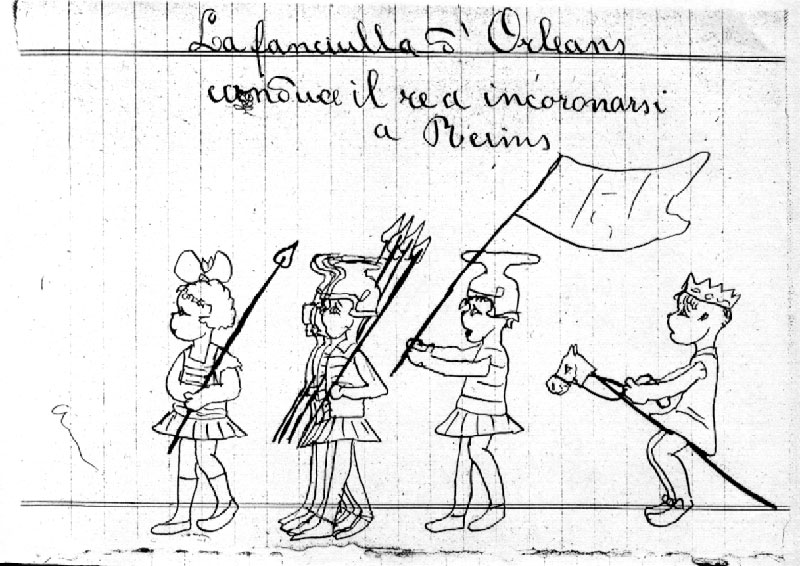 La fanciulla d' Orleans
conduce il re a incoronarsi
a Reims